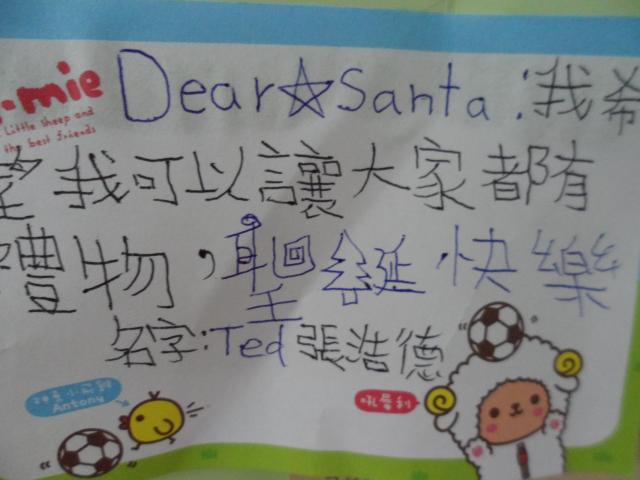 mie
Little Sheep and
the best friends
Dear☆Santa:我希
望我可以讓大家都有
禮物,聖誕快樂
名字:Ted 張浩德
Antony